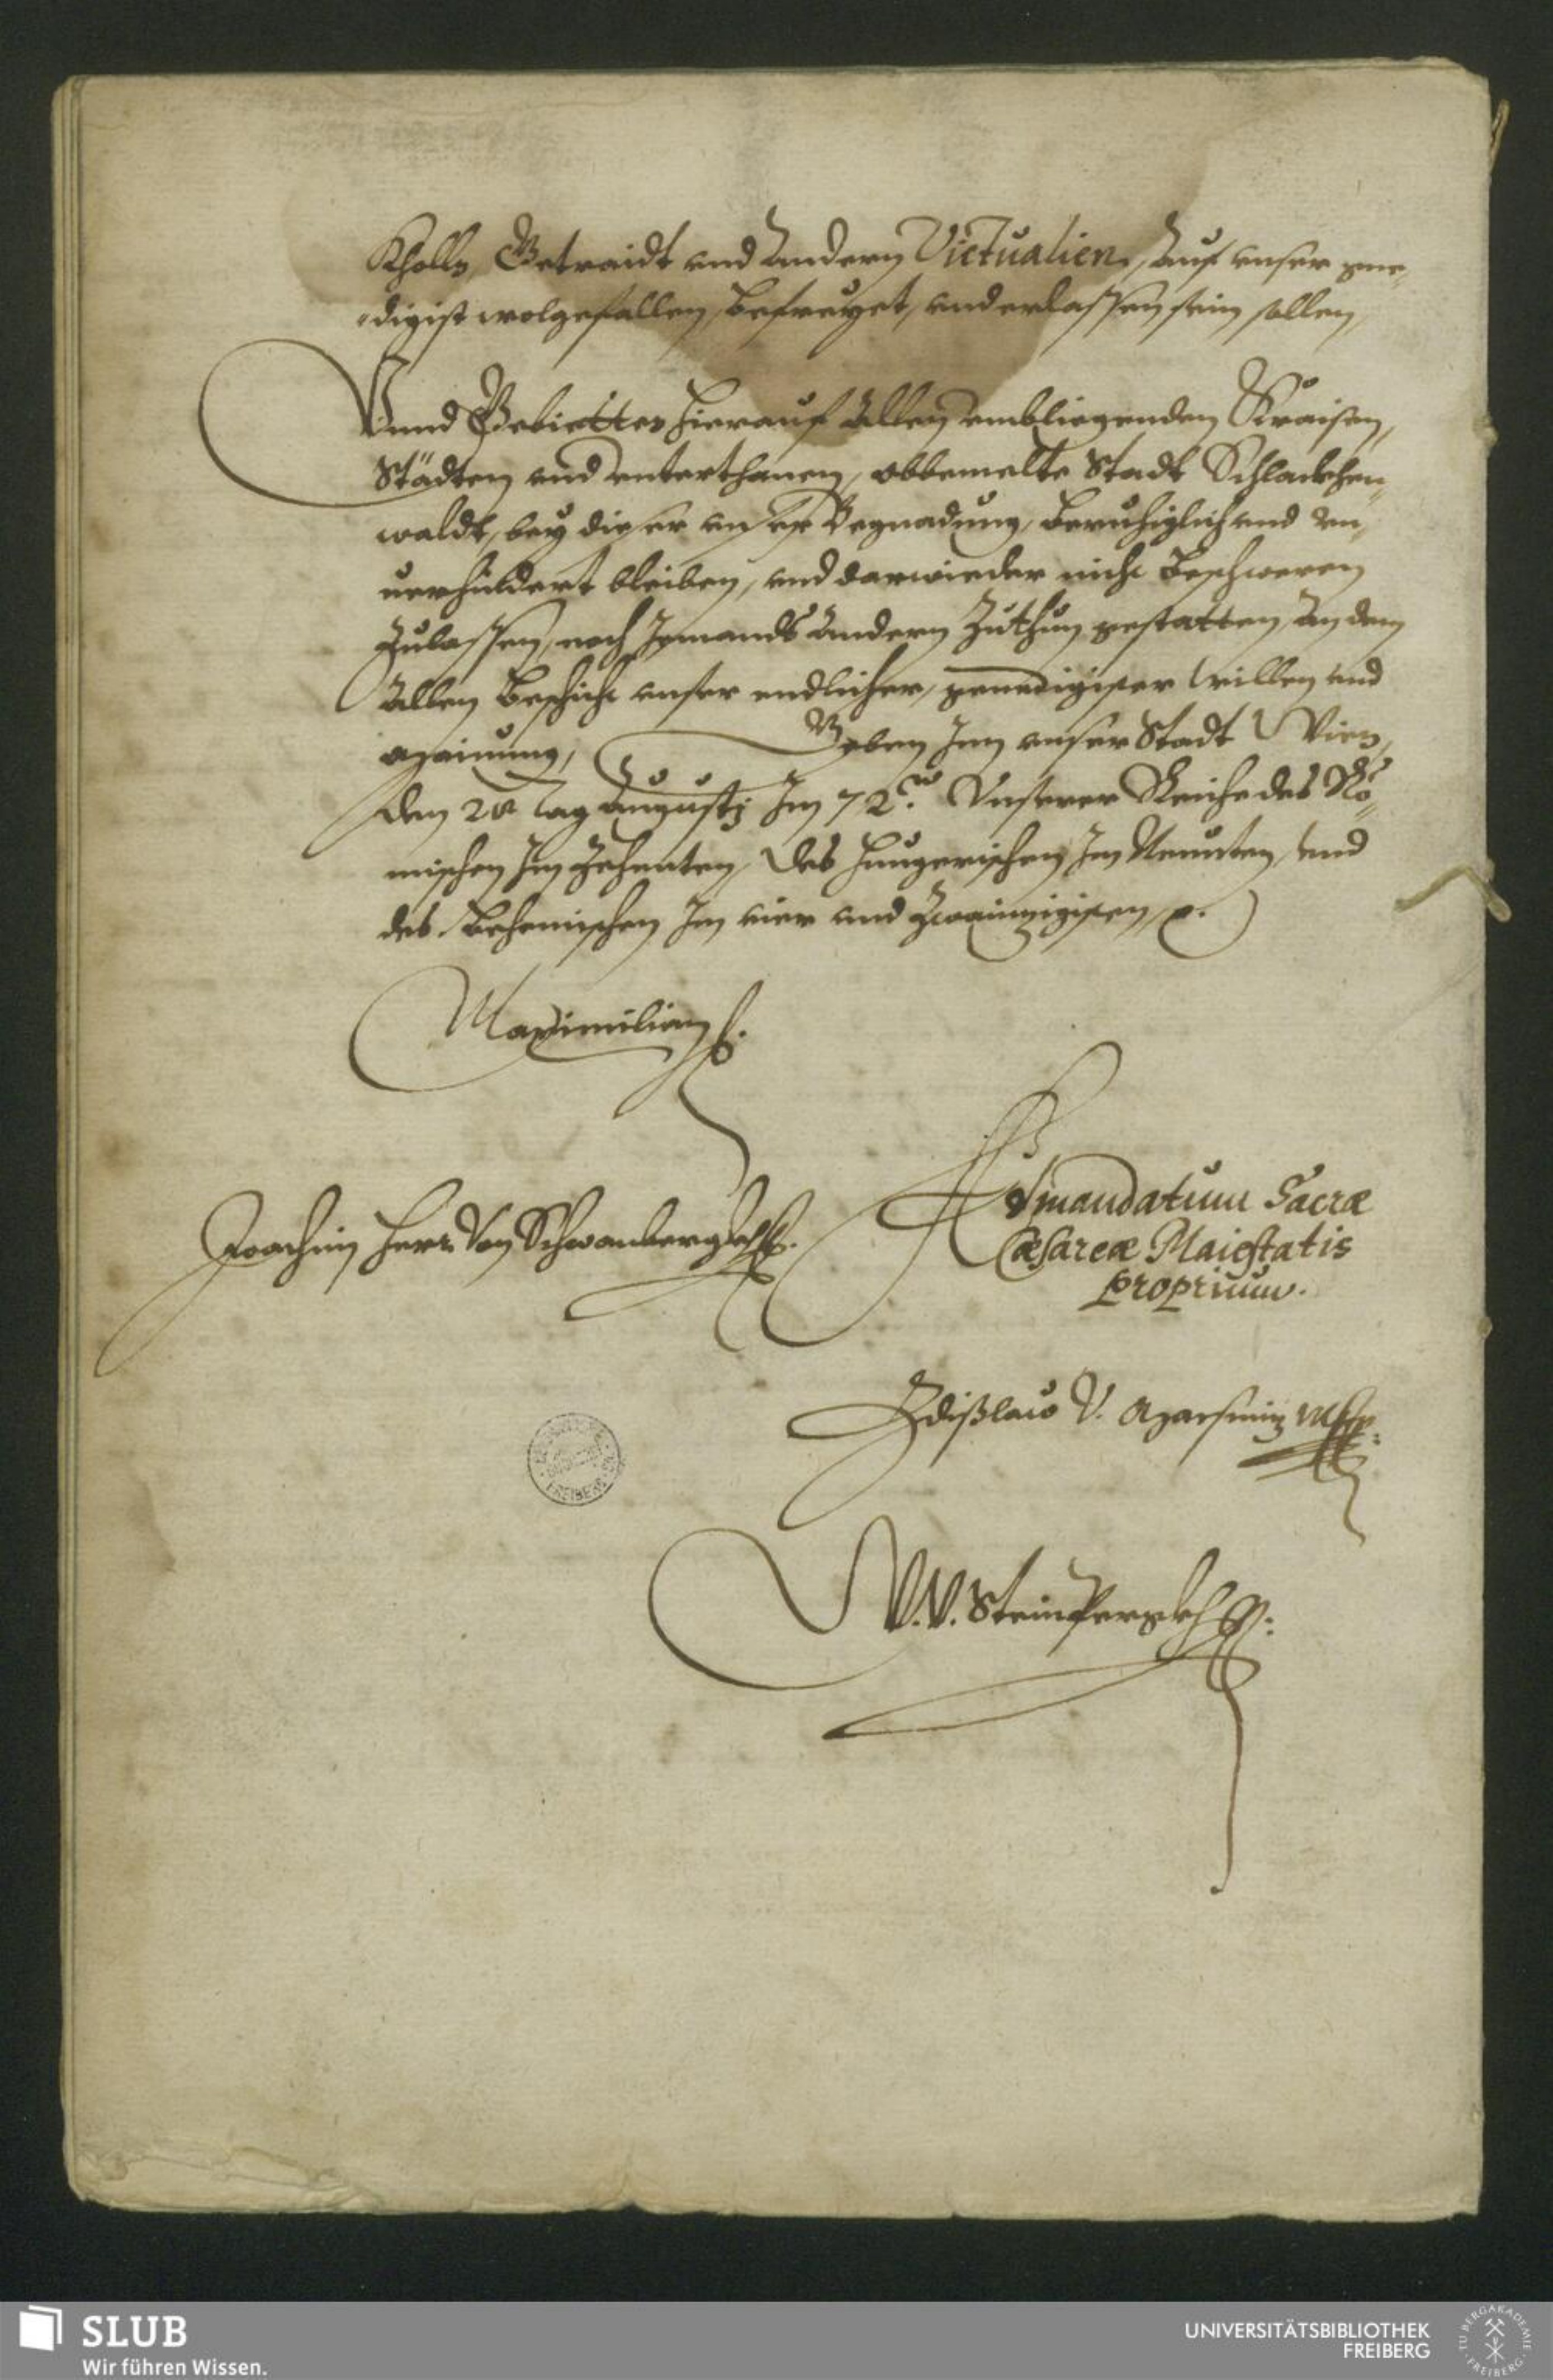 Kholln, Getraidt und Andern Victualien, Auf unser gne-
digist wolgefallen, Befreyet, und erlassen sein sollen,
Unnd Gebietten hierauf Allen umbliegenden Kraisen,
Städten und unterthanen, obbemelte Stadt Schlackhen-
waldt, bey dieser unser Begnadung, Beruhiglich und un-
uerhindert bleiben, und darwieder nicht Beschweren
Zulassen, noch Jemandts Andern Zuthun gestatten, An dem
Allen Beschicht unser endlicher, genedigister Willen und
Mainung, Geben Inn unser Stadt Wien,
den Tag Augustj Im 72. Unserer Reiche des Rö-
mischen Im Zehenten, des Hungerischen Im Neunten, und
des Behemischen Im vier und Zwainzigisten
Maximilian
Joachim Herr Von Schwanberg
Ad mandatum Sacræ
Cæsareæ Maiestatis
proprium.
Zdißlaw V.
W. V. Steinperg
FREIBERG
SLUB
Wir führen Wissen.
UNIVERSITÄTSBIBLIOTHEK
FREIBERG
TU BERGAKADEMIE
FREIBERG